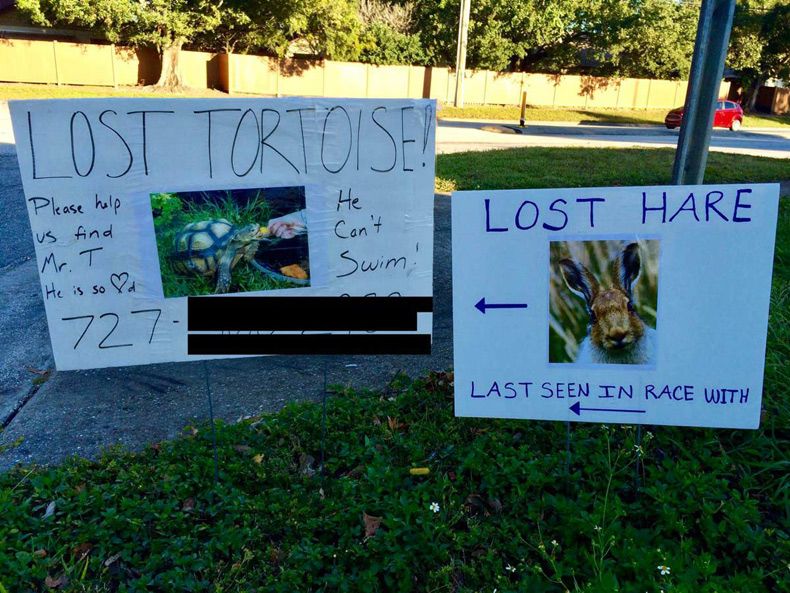 LOST TORTOISE!
Please help
us find
Mr. T
He is so ♡d
He
Can't
Swim!
727-
LOST HARE
LAST SEEN IN RACE WITH